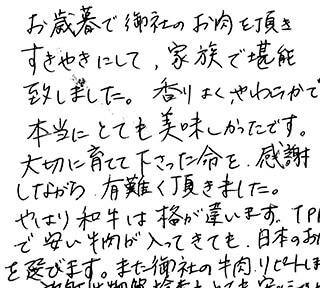 お歳暮で御社のお肉を頂き
すきやきにして、家族で堪能
致しました。香りよく、やわらかで
本当にとても美味しかったです。
大切に育てて下さった命を、感謝
しながら、有難く頂きました。
やはり和牛は格が違います。TPP
で安い牛肉が入ってきても、日本のお
を選びます。また御社の牛肉、リピートしま